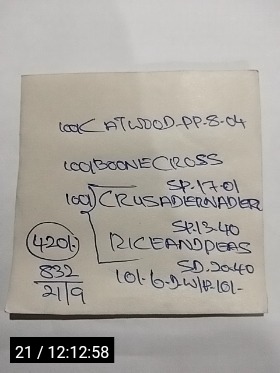 100/CATWOOD-PP-8-04
100/BOONECROSS
SP.17-01
100/CRUSADERNADIER
SP.13-40
RICEANDPEAS
SD.20.40
420/-
832
21/9
101-6-2-W/P.101-
21 / 12:12:58